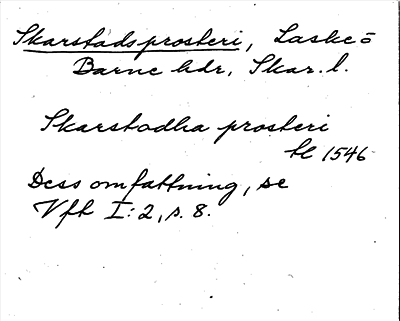 Skarstadsprosteri, Laske o
Barne hdr, Skar. l.
Skarstodha prosteri
hl 1546
Dess omfattning, se
Vfh I:2, s. 8.